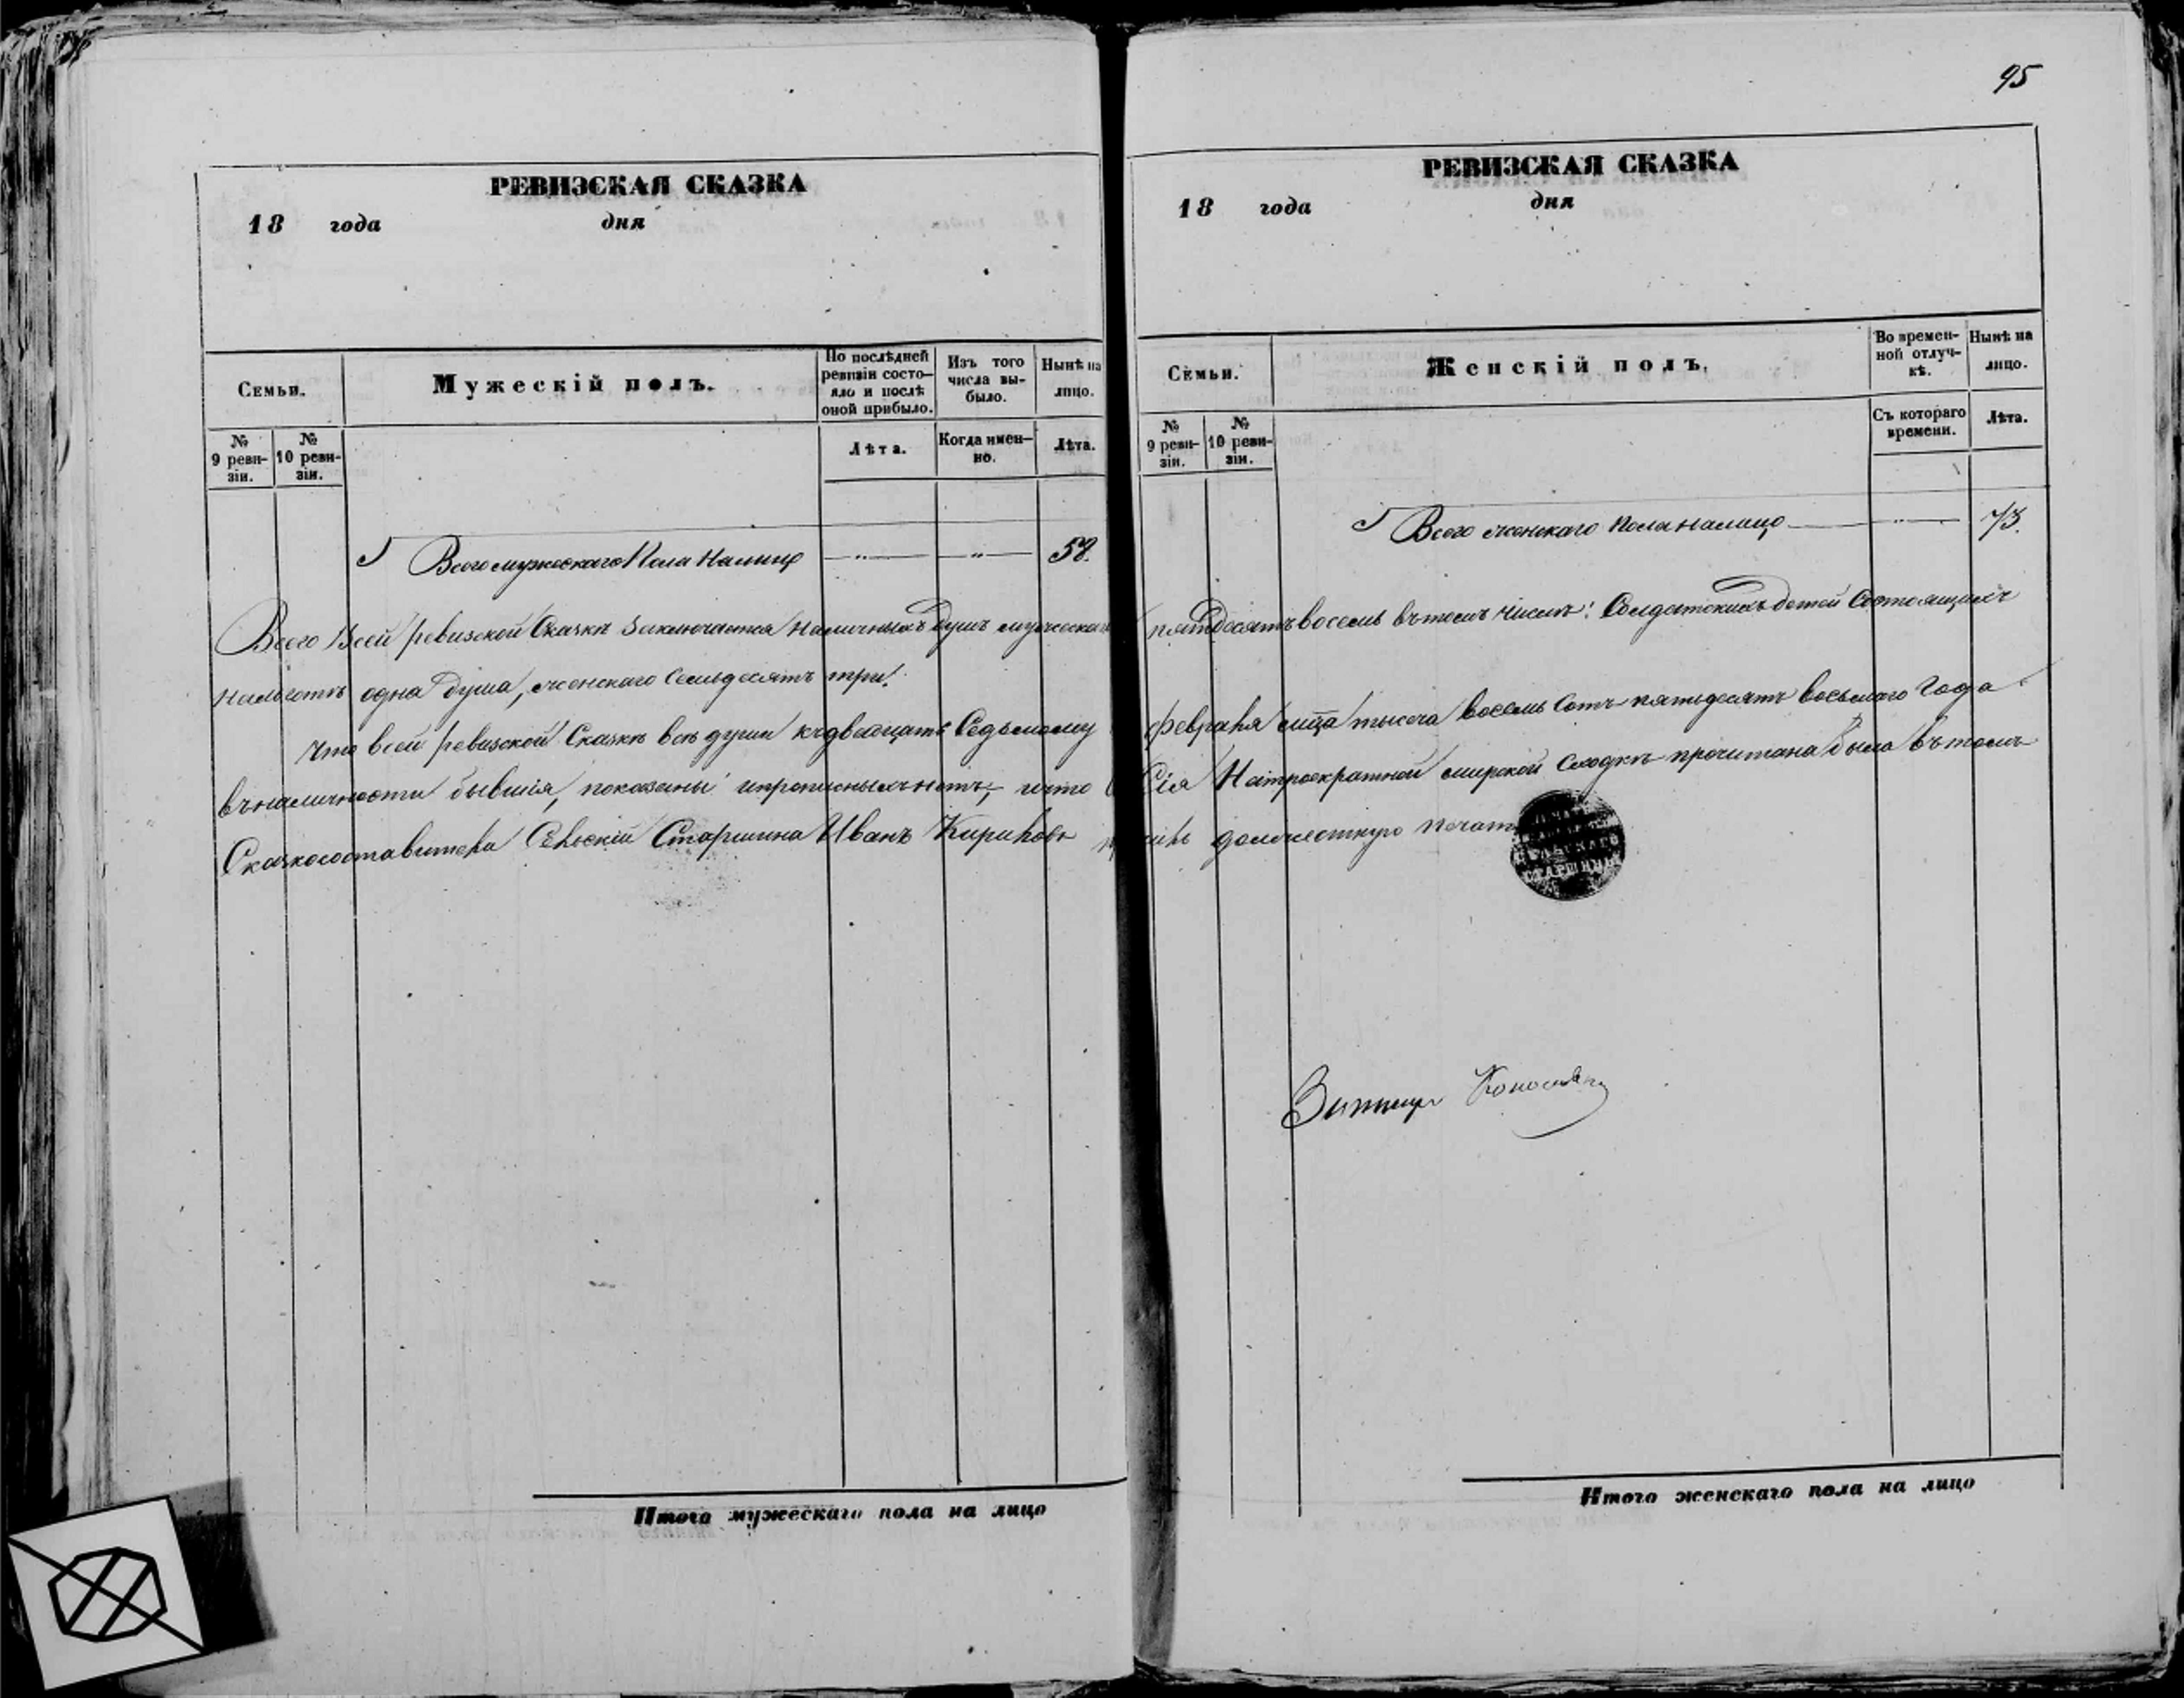 95
РЕВИЗСКАЯ СКАЗКА
18 года дня
Семьи.
Мужескій полъ.
По послѣдней ревизіи состояло и послѣ оной прибыло.
Изъ того числа выбыло.
Нынѣ на лицо.
№ 9 ревизіи.
№ 10 ревизіи.
Лѣта.
Когда именно.
Лѣта.
Всего мужескаго пола налицо — „ — — „ — 58.
РЕВИЗСКАЯ СКАЗКА
18 года дня
Семьи.
Женскій полъ.
Во временной отлучкѣ.
Нынѣ на лицо.
№ 9 ревизіи.
№ 10 ревизіи.
Съ котораго времени.
Лѣта.
Всего женскаго пола налицо — „ — 73.
Всего в сей ревизской Сказкѣ заключается наличныхъ душъ мужескаго пятдесятъ восемь въ томъ числѣ: Солдатскихъ детей состоящихъ
на льготѣ одна душа, женскаго семьдесятъ три.
Что в сей ревизской Сказкѣ всѣ души къ двадцать Седьмому февраля мца тысяча восемь сотъ пятьдесятъ восьмаго года
въ наличности бывшія, показаны и прописныхъ нетъ, и что Сія На троекратной мирской сходкѣ прочитана была въ томъ
Сказкосоставитель Сельскій Старшина Иванъ Кириловъ должностную печать
СЕЛЬСКАГО
СТАРШИНЫ
Итого мужескаго пола на лицо
Итого женскаго пола на лицо